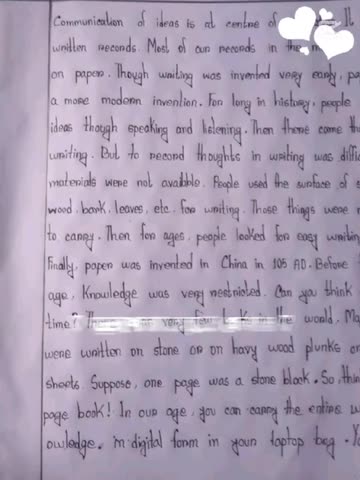 Communication of ideas is at centre of
written records. Most of our records in the
on paper. Though writing was invented very early,
a more modern invention. For long in history, people
ideas though speaking and listening. Then there came
writing. But to record thoughts in writing was
materials were not availble. People used the surface of
wood, bark, leaves, etc. for writing. Those things were
to carry. Then for ages, people looked for easy
Finally, paper was invented in China in 105 AD. Before
age, Knowledge was very restricted. Can you think
time? very few in the world.
were written on stone or on havy wood plunks or
sheets. Suppose, one page was a stone block. So,
page book! In our age, you can carry the entire
owledge. in digital form in your laptop bag.